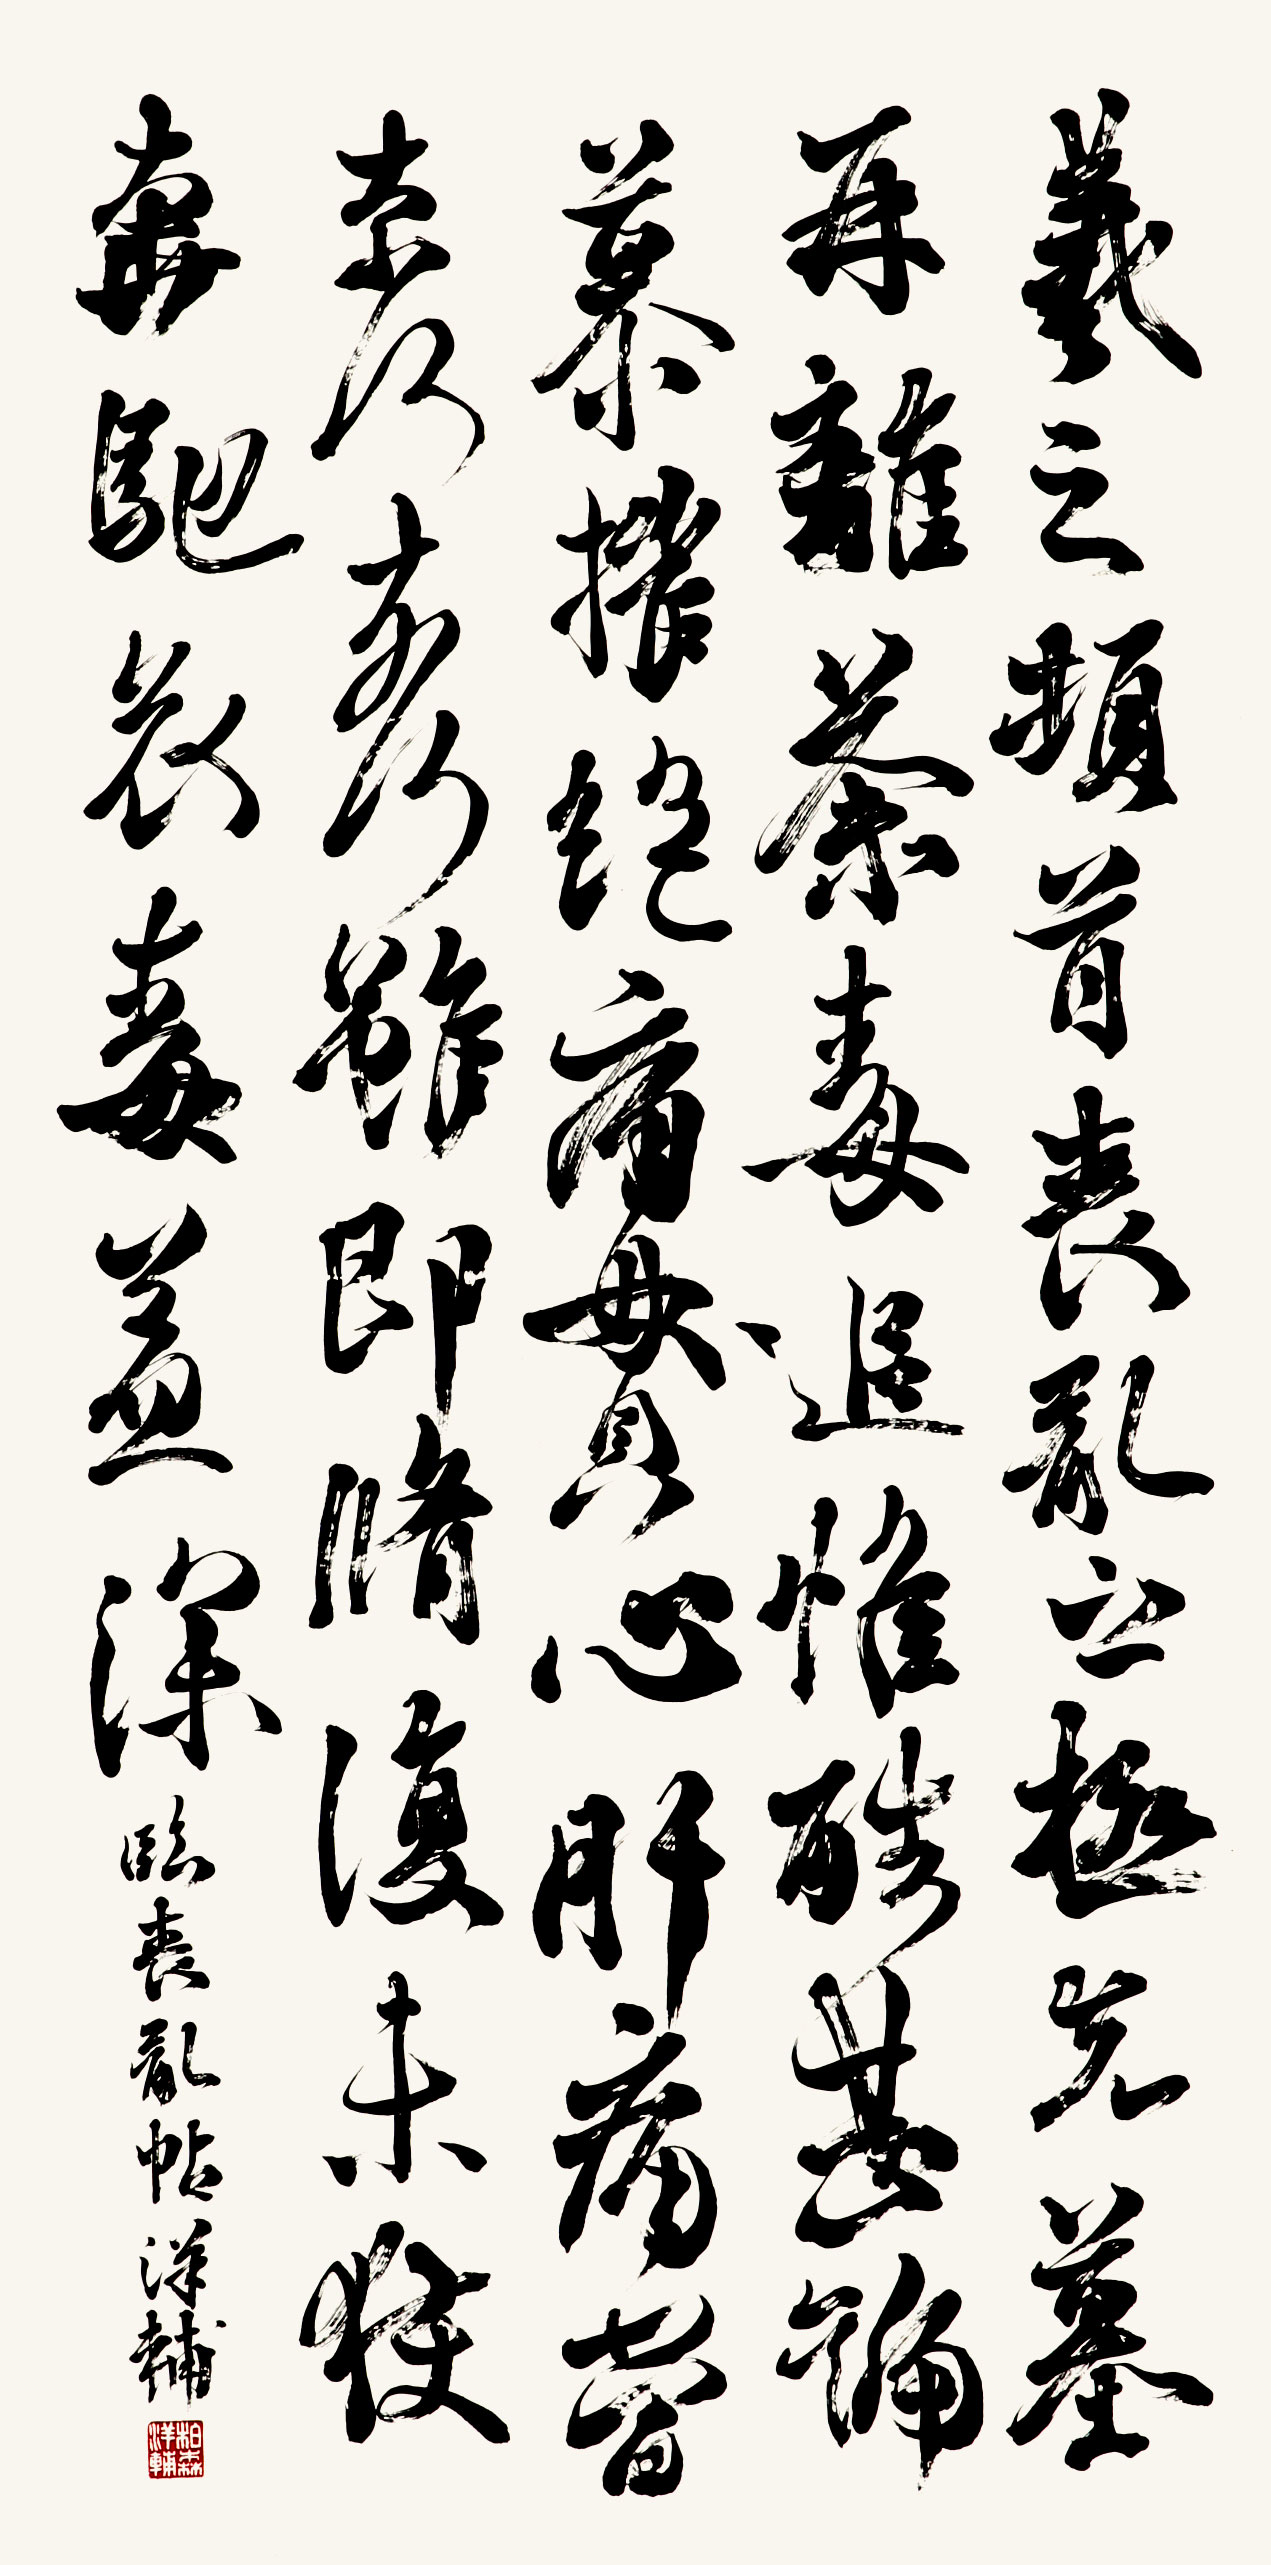 羲之頓首喪亂之極先墓
再離荼毒追惟酷甚號
慕摧絶痛貫心肝痛當
奈何奈何雖即脩復未獲
奔馳哀毒益深 臨喪亂帖 洋輔
柏森洋輔